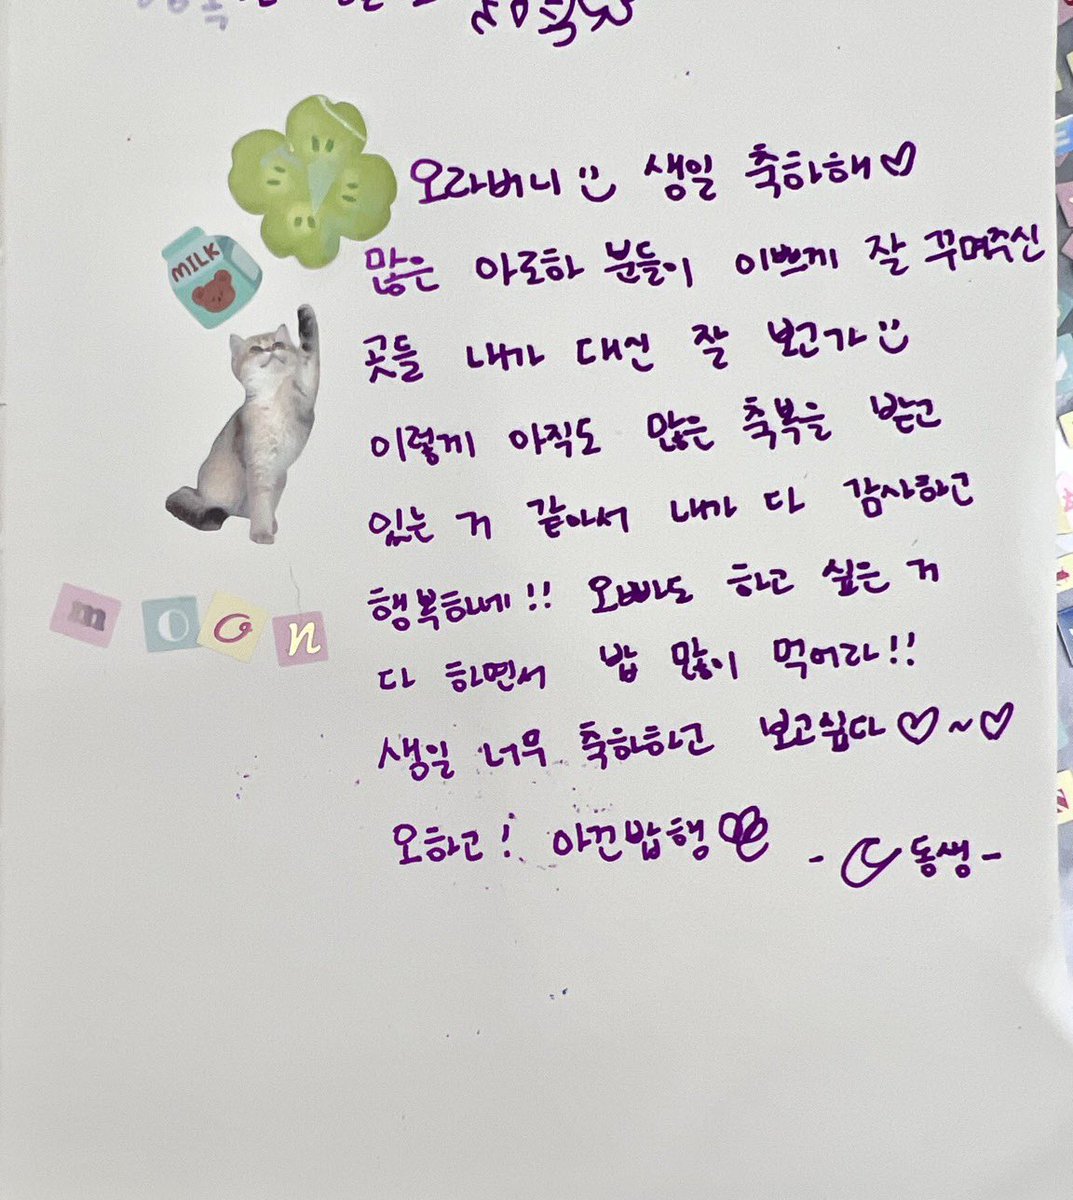 오라버니 생일 축하해♡
MILK
많은 아로하 분들이 이쁘게 잘 꾸며주신
곳들 내가 대신 잘 보고가
이렇게 아직도 많은 축복을 받고
있는 거 같아서 내가 다 감사하고
행복하네!! 오빠도 하고 싶은 거
moon
다 하면서 밥 많이 먹어라!!
생일 너무 축하하고 보고싶다♡~♡
오하고! 아낀밥행
- 동생 -